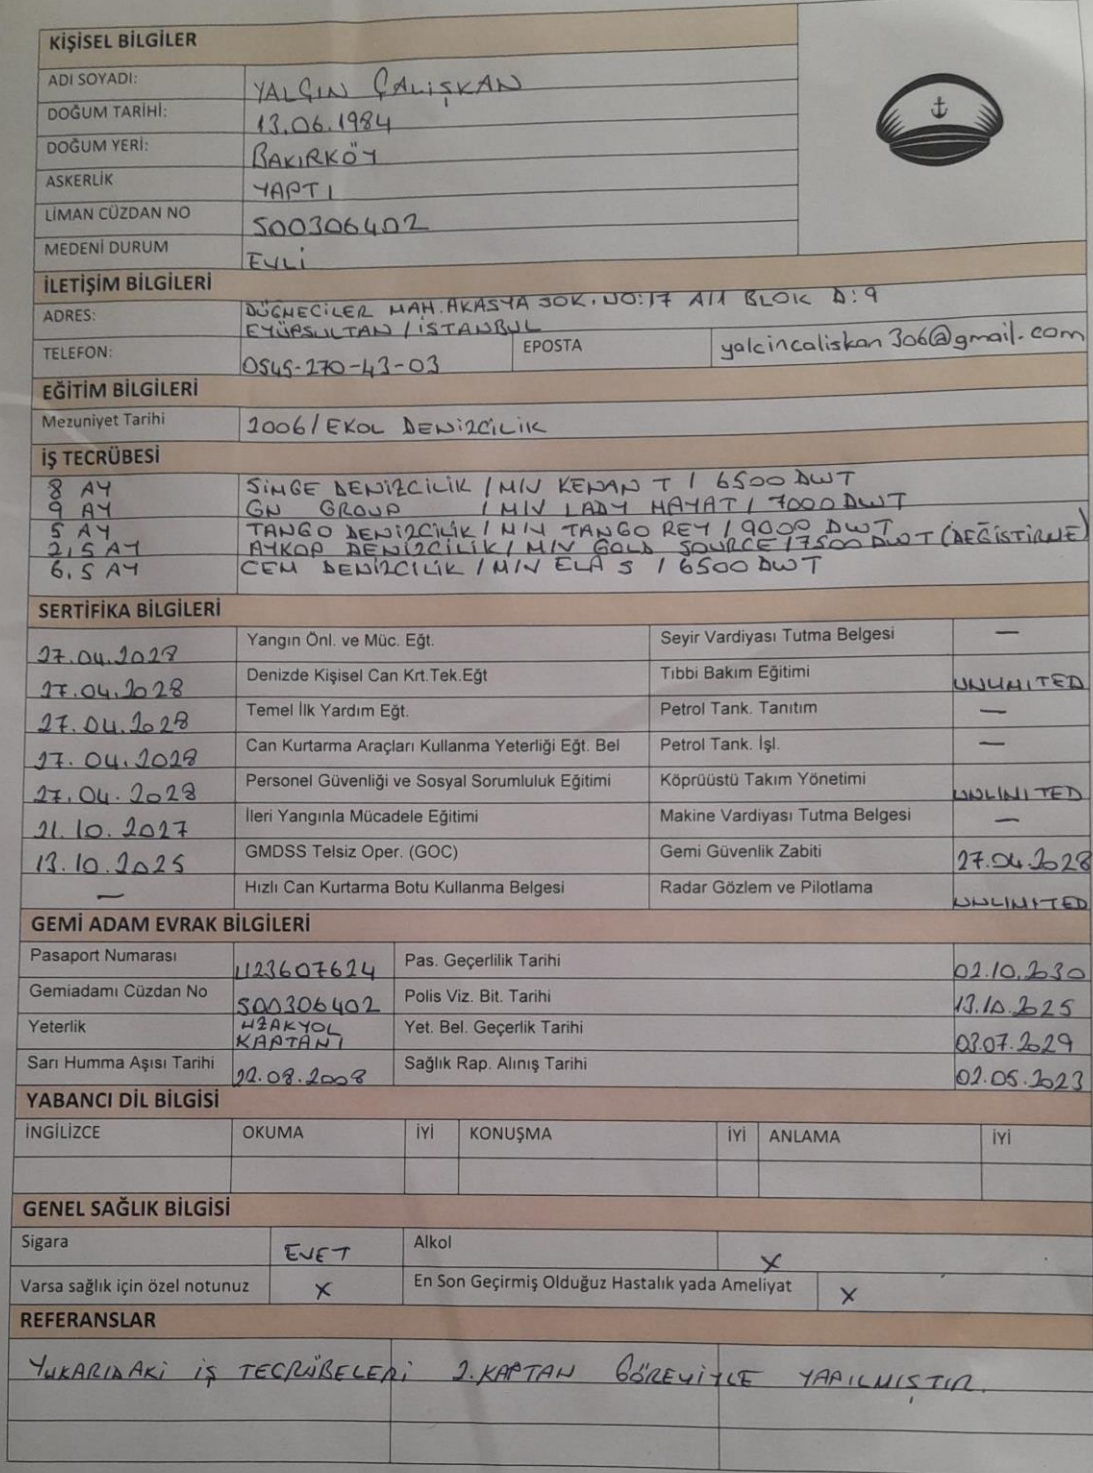 KİŞİSEL BİLGİLER
ADI SOYADI: YALÇIN ÇALIŞKAN
DOĞUM TARİHİ: 13.06.1984
DOĞUM YERİ: BAKIRKÖY
ASKERLİK YAPTI
LİMAN CÜZDAN NO 500306402
MEDENİ DURUM EVLİ
İLETİŞİM BİLGİLERİ
ADRES: DÜĞMECİLER MAH. AKASYA SOK. NO:17 A11 BLOK D:9
EYÜPSULTAN / İSTANBUL
TELEFON: 0545-270-43-03 EPOSTA yalcincaliskan306@gmail.com
EĞİTİM BİLGİLERİ
Mezuniyet Tarihi 2006 / EKOL DENİZCİLİK
İŞ TECRÜBESİ
8 AY SİMGE DENİZCİLİK / M/V KENAN T / 6500 DWT
9 AY GN GROUP / M/V LADY HAYAT / 7000 DWT
5 AY TANGO DENİZCİLİK / M/V TANGO REY / 9000 DWT
2,5 AY AYKOP DENİZCİLİK / M/V GOLD SOURCE / 7500 DWT (DEĞİŞTİRME)
6.5 AY CEM DENİZCİLİK / M/V ELA S / 6500 DWT
SERTİFİKA BİLGİLERİ
27.04.2028 Yangın Önl. ve Müc. Eğt. Seyir Vardiyası Tutma Belgesi —
27.04.2028 Denizde Kişisel Can Krt.Tek.Eğt Tıbbi Bakım Eğitimi UNLIMITED
27.04.2028 Temel İlk Yardım Eğt. Petrol Tank. Tanıtım —
27.04.2028 Can Kurtarma Araçları Kullanma Yeterliği Eğt. Bel Petrol Tank. İşl. —
27.04.2028 Personel Güvenliği ve Sosyal Sorumluluk Eğitimi Köprüüstü Takım Yönetimi UNLIMITED
21.10.2027 İleri Yangınla Mücadele Eğitimi Makine Vardiyası Tutma Belgesi —
13.10.2025 GMDSS Telsiz Oper. (GOC) Gemi Güvenlik Zabiti 27.04.2028
— Hızlı Can Kurtarma Botu Kullanma Belgesi Radar Gözlem ve Pilotlama UNLIMITED
GEMİ ADAM EVRAK BİLGİLERİ
Pasaport Numarası U23607624 Pas. Geçerlilik Tarihi 02.10.2030
Gemiadamı Cüzdan No 500306402 Polis Viz. Bit. Tarihi 13.10.2025
Yeterlik UZAKYOL KAPTANI Yet. Bel. Geçerlik Tarihi 03.07.2029
Sarı Humma Aşısı Tarihi 22.08.2008 Sağlık Rap. Alınış Tarihi 02.05.2023
YABANCI DİL BİLGİSİ
İNGİLİZCE OKUMA İYİ KONUŞMA İYİ ANLAMA İYİ
GENEL SAĞLIK BİLGİSİ
Sigara EVET Alkol X
Varsa sağlık için özel notunuz X En Son Geçirmiş Olduğuz Hastalık yada Ameliyat X
REFERANSLAR
YUKARIDAKİ İŞ TECRÜBELERİ 2.KAPTAN GÖREVİYLE YAPILMIŞTIR.